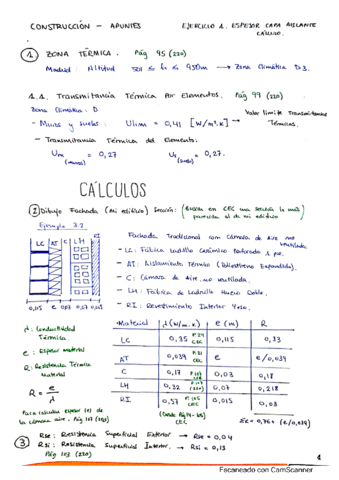 CONSTRUCCIÓN - APUNTES
EJERCICIO 1. ESPESOR CAPA AISLANTE
CÁLCULO.
1. ZONA TÉRMICA. Pág 95 (220)
Madrid: Altitud 501 ≤ h ≤ 950m → Zona Climática D3.
1.1. Transmitancia Térmica por Elementos. Pág 99 (220)
Zona Climática: D
- Muros y suelos: Ulim = 0,41 [W/m².K] → Valor límite Transmitancias Térmicas.
- Transmitancia Térmica del Elemento:
Um (muros) = 0,27 Us (suelo) = 0,27.
CÁLCULOS
2 Dibujo Fachada (mi edificio) Sección: (Buscar en CEC una sección lo más
parecida al de mi edificio
Ejemplo 3.2
Fachada Tradicional con Cámara de aire no ventilada.
LC AT C LH RI
- LC: Fábrica Ladrillo Cerámico Perforado 1 pie.
- AT: Aislamiento Térmico (Poliestireno Expandido).
- C: Cámara de aire no ventilada.
- LH: Fábrica de Ladrillo Hueco Doble.
- RI: Revestimiento Interior Yeso.
0,115 e 0,03 0,07 0,015
λ: Conductividad Térmica
e: Espesor material
R: Resistencia Térmica Material
R = e/λ
Para calcular espesor (e) de
la cámara aire. Pág 107 (220)
Material λ (W/m.K) e (m) R
LC 0,35 0,115 0,33
AT 0,039 e e/0,039
C 0,17 0,03 0,18
LH 0,32 0,07 0,218
RI 0,57 0,015 0,03
CEC
ΣR = 0,76 + (e/0,039)
3 Rse: Resistencia Superficial Exterior → Rse = 0,04
Rsi: Resistencia Superficial Interior. → Rsi = 0,13
Pág 103 (220)
4
Escaneado con CamScanner